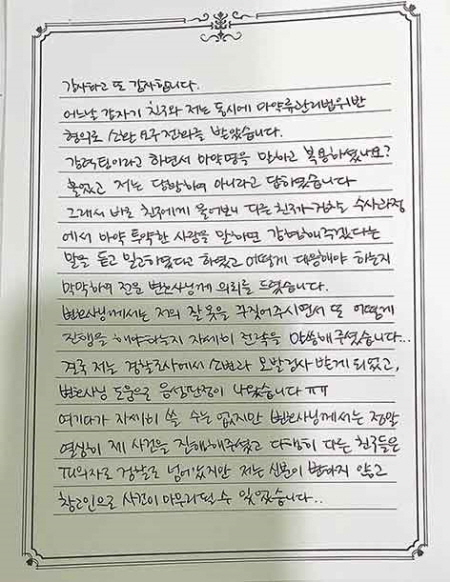 감사하고 또 감사합니다.
어느날 갑자기 친구와 저는 동시에 마약류관리법위반
혐의로 소환 요구 전화를 받았습니다.
강력팀이라고 하면서 마약명을 말하고 복용하셨나요?
물었고 저는 당황하여 아니라고 답하였습니다
그래서 바로 친구에게 물어보니 다른 친구가 경찰 수사과정
에서 마약 투약한 사람을 말하면 감형해주겠다는
말을 듣고 밀고하였다고 하였고 어떻게 대응해야 하는지
막막하여 전문 변호사님께 의뢰를 드렸습니다.
변호사님께서는 저의 잘못을 꾸짖어주시면서 또 어떻게
진행을 해야하는지 자세히 전략을 말씀해주셨습니다...
결국 저는 경찰조사에서 소변과 모발검사 받게 되었고,
변호사님 도움으로 음성판정이 나왔습니다 ㅠㅠ
여기다가 자세히 쓸 수는 없지만 변호사님께서는 정말
열심히 제 사건을 진행해주셨고 다행히 다른 친구들은
피의자로 검찰로 넘어갔지만 저는 신분이 변하지 않고
참고인으로 사건이 마무리될 수 있었습니다..